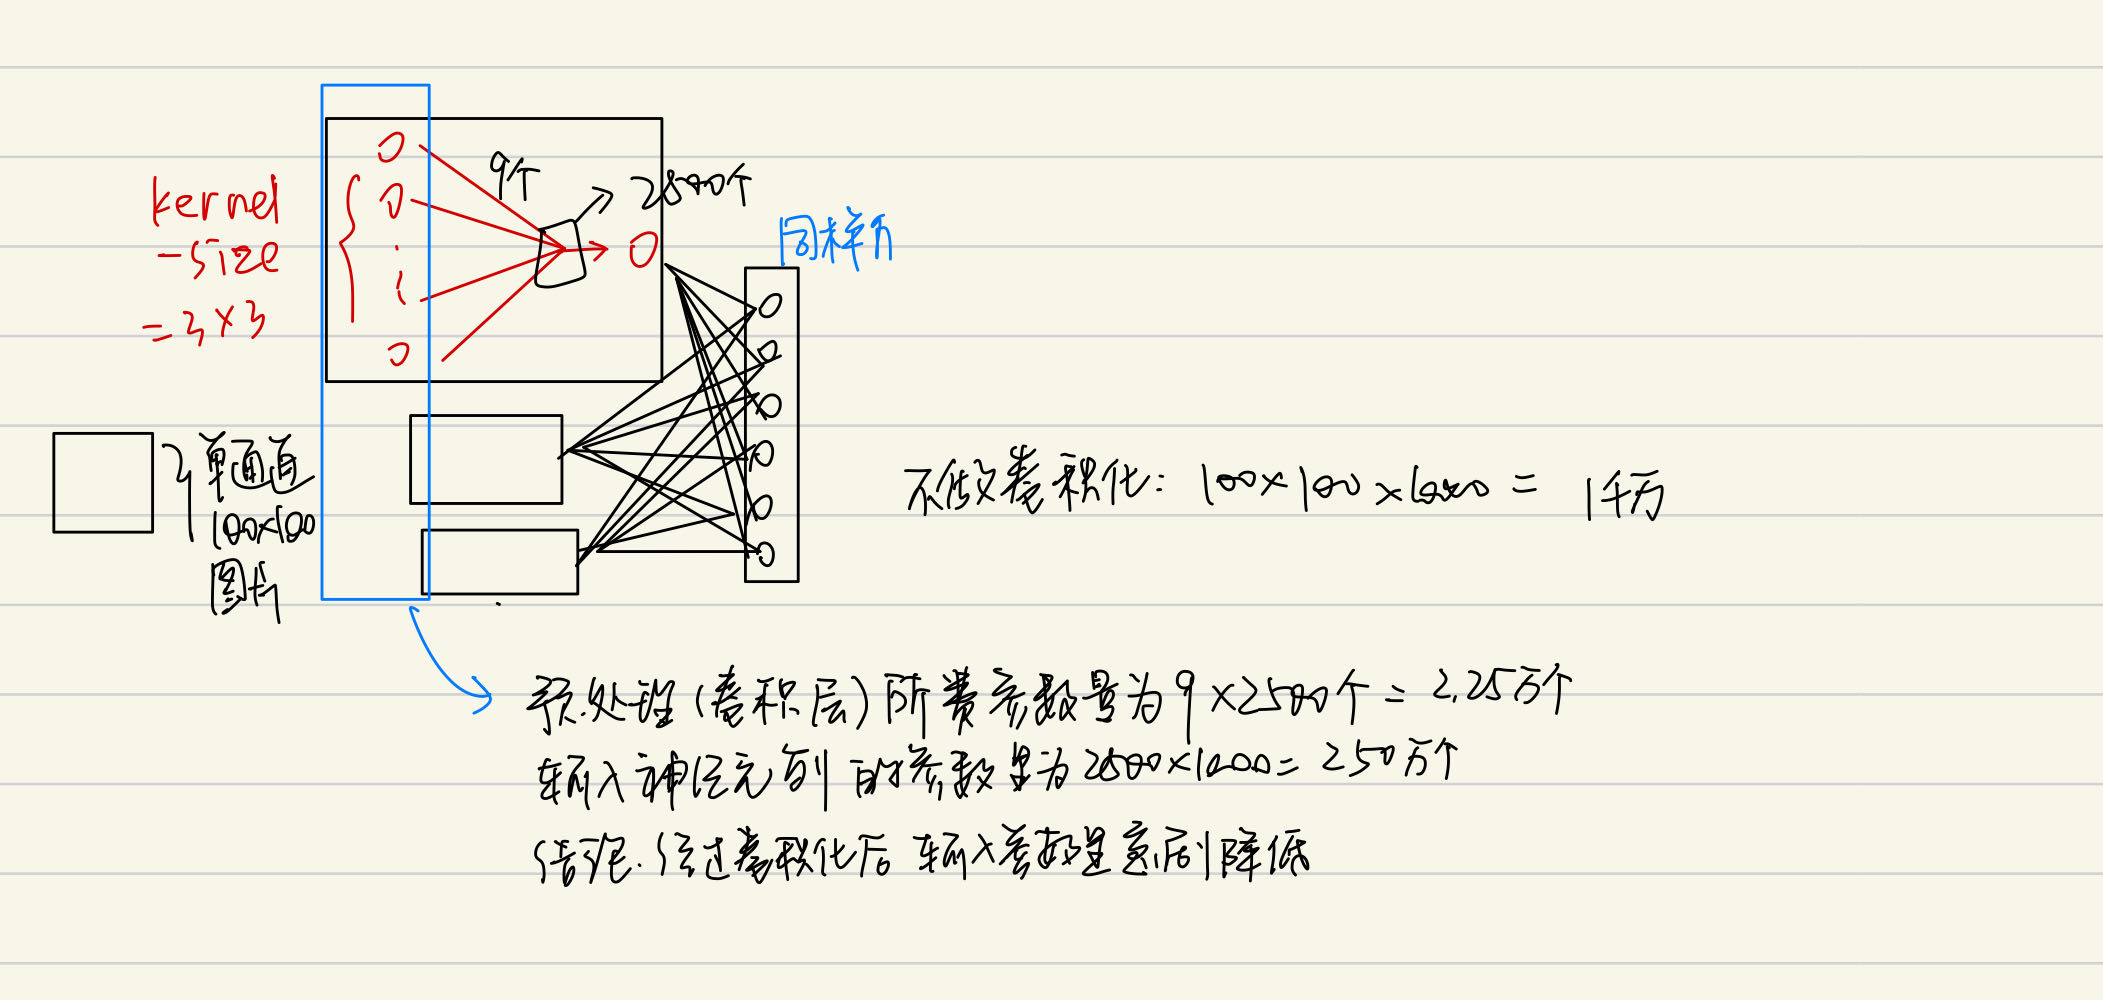 kernel
-size
=3×3
9个
2500个
同样为
单通道
100×100
图片
不做卷积化: 100×100×1000 = 1千万
预处理(卷积层)所费参数量为9×2500个 = 2.25万个
输入神经元到 的参数量为2500×1000= 250万个
结论.经过卷积化后 输入参数量急剧降低